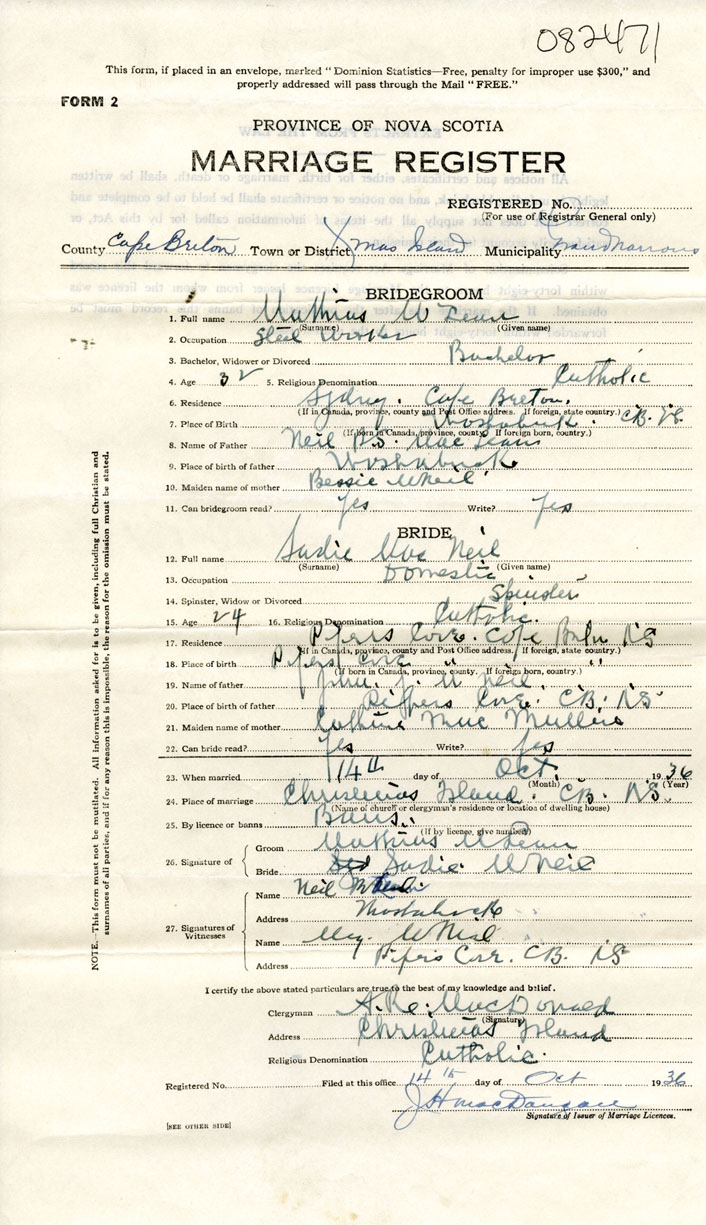 082471
This form, if placed in an envelope, marked "Dominion Statistics—Free, penalty for improper use $300," and
properly addressed will pass through the Mail "FREE."
FORM 2
PROVINCE OF NOVA SCOTIA
MARRIAGE REGISTER
REGISTERED No.
(For use of Registrar General only)
County Cape Breton Town or District Xmas Island Municipality Grand Narrows
BRIDEGROOM
1. Full name Mathias McLean
(Surname) (Given name)
2. Occupation Steel Worker
3. Bachelor, Widower or Divorced Bachelor
4. Age 32 5. Religious Denomination Catholic
6. Residence Sydney. Cape Breton.
(If in Canada, province, county and Post Office address. If foreign, state country.)
7. Place of Birth C.B. N.S.
(If born in Canada, province, county. If foreign born, country.)
8. Name of Father Neil P.S. MacLean
9. Place of birth of father
10. Maiden name of mother Bessie McNeil
11. Can bridegroom read? Yes Write? Yes
BRIDE
12. Full name Sadie MacNeil
(Surname) (Given name)
13. Occupation Domestic
14. Spinster, Widow or Divorced Spinster
15. Age 24 16. Religious Denomination Catholic.
17. Residence Pipers Cove. Cape Breton NS
(If in Canada, province, county and Post Office address. If foreign, state country.)
18. Place of birth Pipers Cove " "
(If born in Canada, province, county. If foreign born, country.)
19. Name of father John J. McNeil
20. Place of birth of father Pipers Cove. C.B. NS
21. Maiden name of mother Cathrine MacMullin
22. Can bride read? Yes Write? Yes
23. When married 14th day of Oct. 1936
(Month) (Year)
24. Place of marriage Christmas Island. C.B. NS.
(Name of church or clergyman's residence or location of dwelling house)
25. By licence or banns Banns.
(If by licence, give number)
26. Signature of Groom Mathias McLean
Bride Sadie McNeil
27. Signatures of Witnesses
Name Neil
Address
Name McNeil
Address Pipers Cove. C.B. NS
I certify the above stated particulars are true to the best of my knowledge and belief.
Clergyman MacDonald
(Signature)
Address Christmas Island
Religious Denomination Catholic.
Registered No. Filed at this office 14th day of Oct 1936
J H MacDougall
Signature of Issuer of Marriage Licences.
[SEE OTHER SIDE]
NOTE.—This form must not be mutilated. All information asked for is to be given, including full Christian and
surnames of all parties, and if for any reason this is impossible, the reason for the omission must be stated.